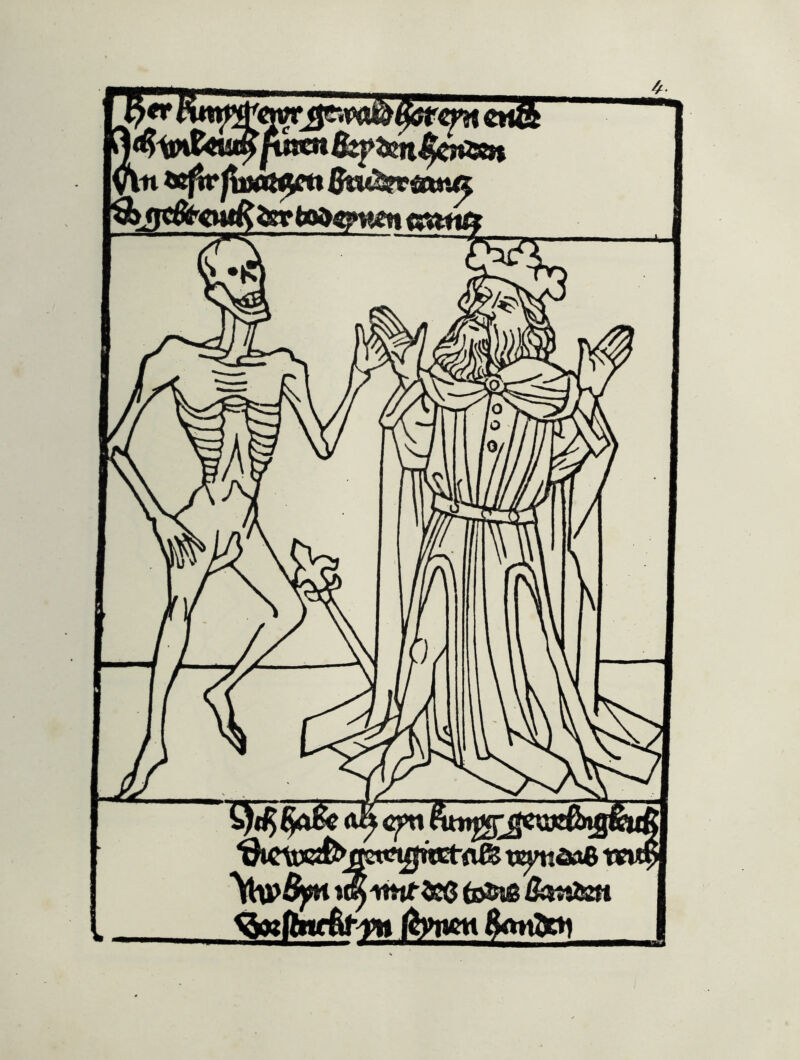 4.
Her kunyg ewr gewald hot eyn endt
Ich wil euch furen bey den henden
An desir swarczen bruder tancz
Do gebt euch der tod eynen crancz
Ich habe als eyn kunyg geweldigleich
Die werld gereigniret als das reich
Nw byn ich mit des todis banden
Vorstrickt yn seynen handen